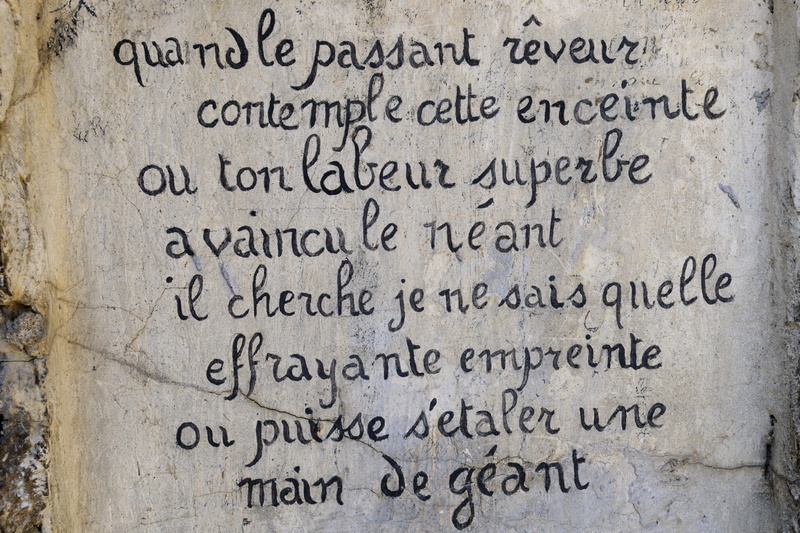 quand le passant rêveur
contemple cette enceinte
ou ton labeur superbe
a vaincu le néant
il cherche je ne sais quelle
effrayante empreinte
ou puisse s'etaler une
main de géant